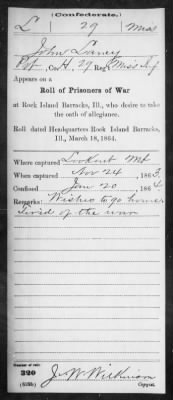 (Confederate.)
L 29 Miss
John Laney
Pvt, Co. H, 29 Reg. Miss Inf
Appears on a
Roll of Prisoners of War
at Rock Island Barracks, Ill., who desire to take
the oath of allegiance.
Roll dated Headquarters Rock Island Barracks,
Ill., March 18, 1864.
Where captured Lookout Mt
When captured Nov 24, 1863.
Confined Jan 20, 1864
Remarks: Wishes to go home
Tired of the war
Number of roll:
320
(639b)
J. W. Wilkinson
Copyist.